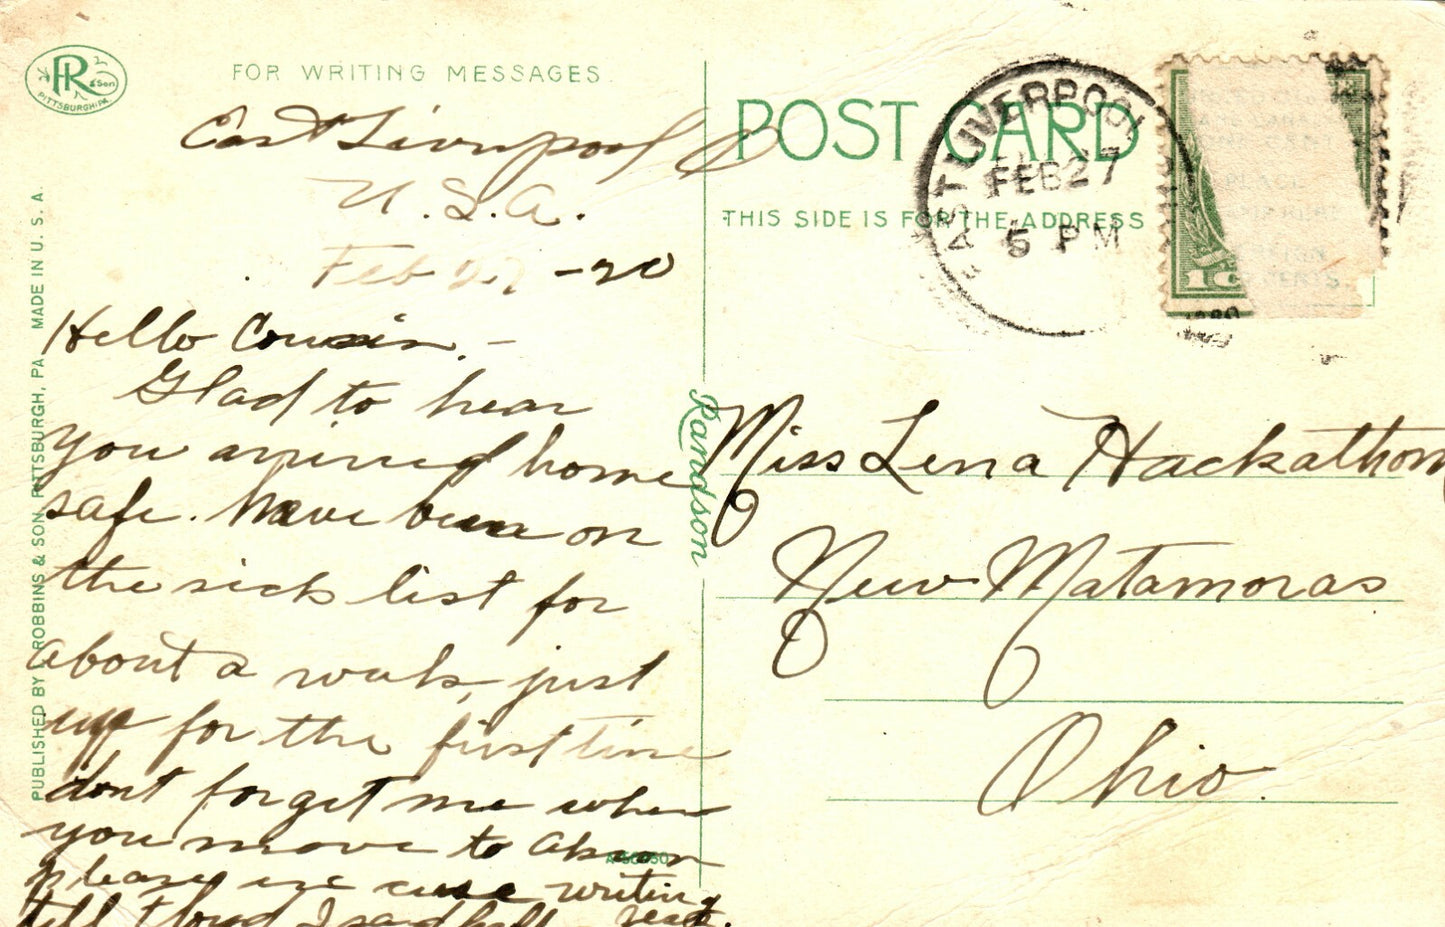 R & Son
PITTSBURGH.PA.
FOR WRITING MESSAGES.
East Liverpool O
U.S.A.
Feb 27 - 20
Hello Cousin. -
Glad to hear
you arrived home
safe. Have been on
the sick list for
about a week, just
up for the first time
dont forget me when
you move to Akron
please excuse writing
tell Floyd I said hello
PUBLISHED BY I. ROBBINS & SON. PITTSBURGH, PA MADE IN U. S. A.
Randson
POST CARD
THIS SIDE IS FOR THE ADDRESS
EAST LIVERPOOL
FEB 27
5 PM
1920
1
Miss Lena Hackathorn
New Matamoras
Ohio.